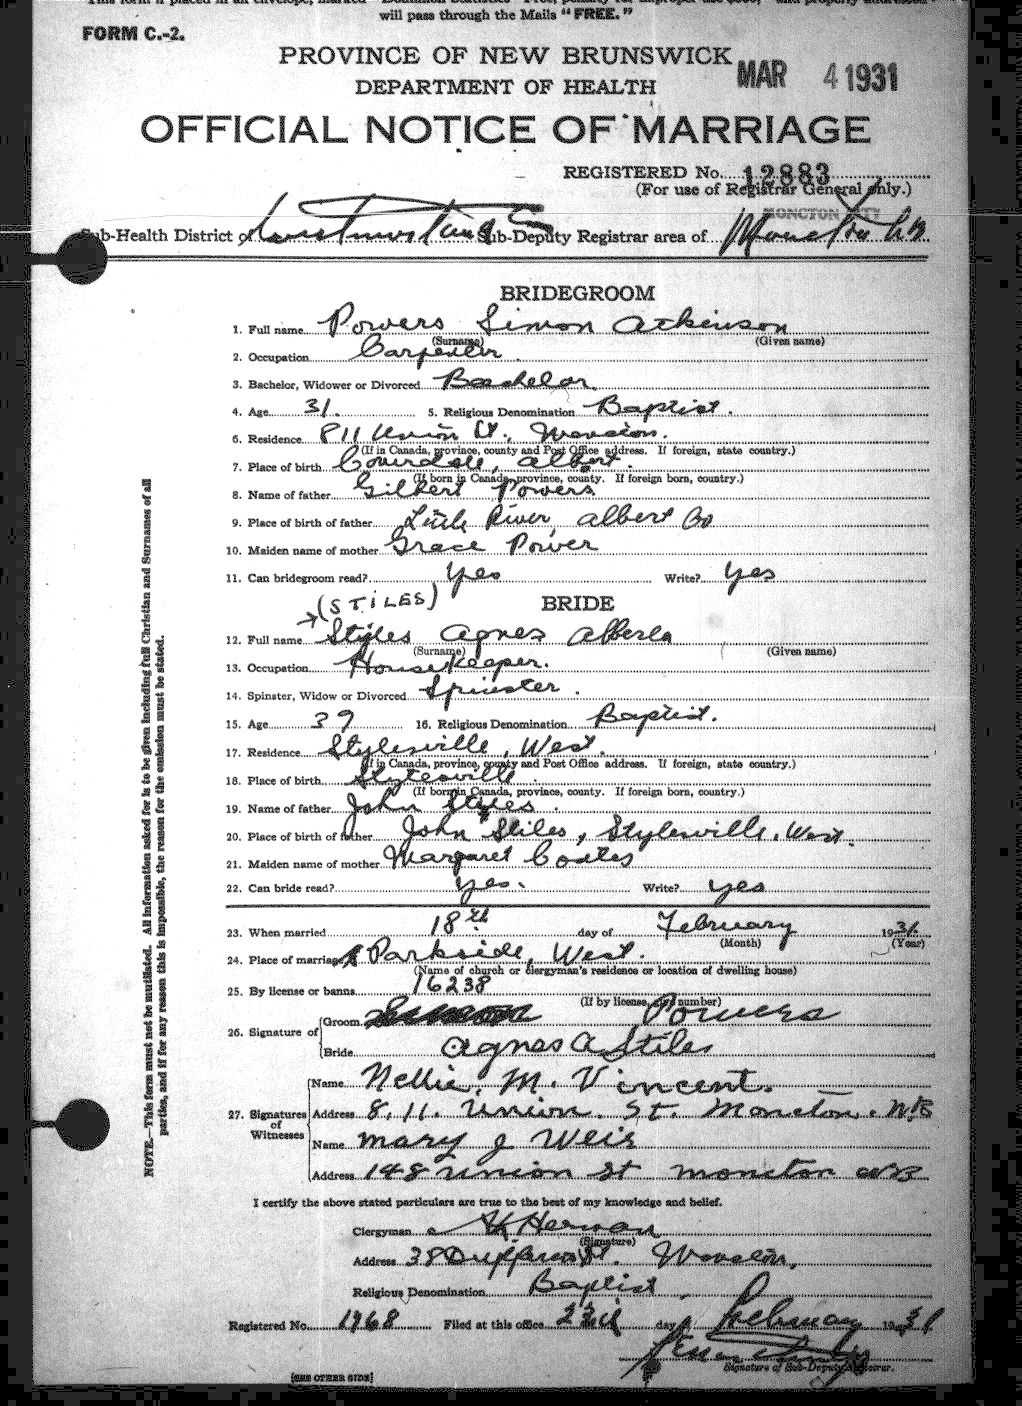 will pass through the Mails "FREE."
FORM C.-2.
PROVINCE OF NEW BRUNSWICK
MAR 4 1931
DEPARTMENT OF HEALTH
OFFICIAL NOTICE OF MARRIAGE
REGISTERED No. 12883
(For use of Registrar General only.)
MONCTON CITY
Sub-Health District of Sub-Deputy Registrar area of Moncton NB
BRIDEGROOM
1. Full name Powers Simon Atkinson
(Surname) (Given name)
2. Occupation Carpenter
3. Bachelor, Widower or Divorced Bachelor
4. Age 31. 5. Religious Denomination Baptist.
6. Residence 811 Union St., Moncton.
(If in Canada, province, county and Post Office address. If foreign, state country.)
7. Place of birth Coverdale, Albert.
(If born in Canada, province, county. If foreign born, country.)
8. Name of father Gilbert Powers
9. Place of birth of father Little River, Albert Co
10. Maiden name of mother Grace Power
11. Can bridegroom read? yes Write? yes
(STILES)
BRIDE
12. Full name Styles Agnes Alberta
(Surname) (Given name)
13. Occupation Housekeeper.
14. Spinster, Widow or Divorced Spinster.
15. Age 39 16. Religious Denomination Baptist.
17. Residence Stylesville, West.
(If in Canada, province, county and Post Office address. If foreign, state country.)
18. Place of birth Stylesville.
(If born in Canada, province, county. If foreign born, country.)
19. Name of father John Styles.
20. Place of birth of father John Stiles, Stylesville, West.
21. Maiden name of mother Margaret Coates
22. Can bride read? yes. Write? yes
23. When married 18th day of February 1931.
(Month) (Year)
24. Place of marriage Parkside, West.
(Name of church or clergyman's residence or location of dwelling house)
25. By license or banns 16238
(If by license, give number)
26. Signature of Groom Simon Powers
Bride Agnes A Stiles
27. Signatures of Witnesses
Name Nellie. M. Vincent.
Address 8.11. Union. St. Moncton. N.B
Name Mary J Weir
Address 148 Union St Moncton NB
I certify the above stated particulars are true to the best of my knowledge and belief.
Clergyman Herman
(Signature)
Address 38 Dufferin St. Moncton.
Religious Denomination Baptist.
Registered No. 1968 Filed at this office 23rd day of February 1931
Signature of Sub-Deputy Registrar.
[SEE OTHER SIDE]
NOTE.—This form must not be mutilated. All information asked for is to be given including full Christian and Surnames of all
parties, and if for any reason this is impossible, the reason for the omission must be stated.